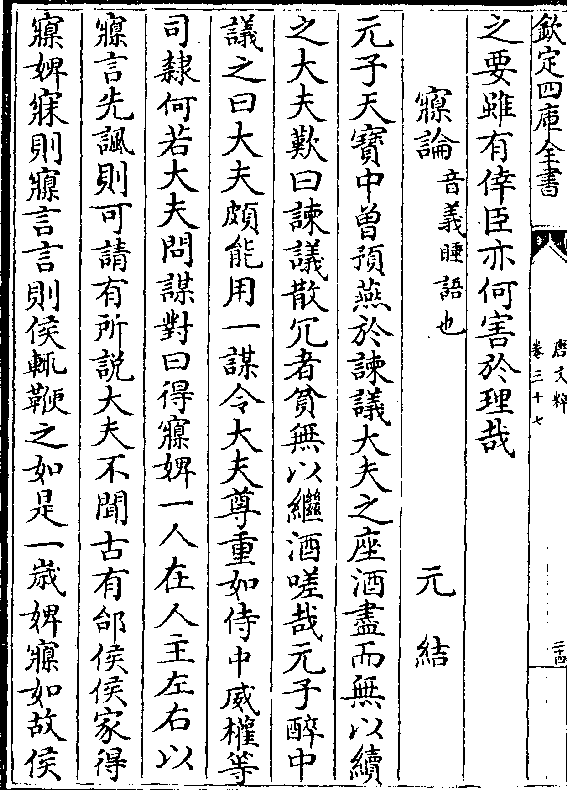 欽定四庫全書
唐文粹
卷三十七
二十四
之要雖有倖臣亦何害於理哉
寱論音義睡語也 元結
元子天寶中曾預燕於諫議大夫之座酒盡而無以續
之大夫歎曰諫議散冗者貧無以繼酒嗟哉元子醉中
議之曰大夫頗能用一謀令大夫尊重如侍中威權等
司隸何若大夫問謀對曰得寱婢一人在人主左右以
寱言先諷則可請有所説大夫不聞古有郃侯侯家得
寱婢寐則寱言言則侯輒鞭之如是一歳婢寱如故侯